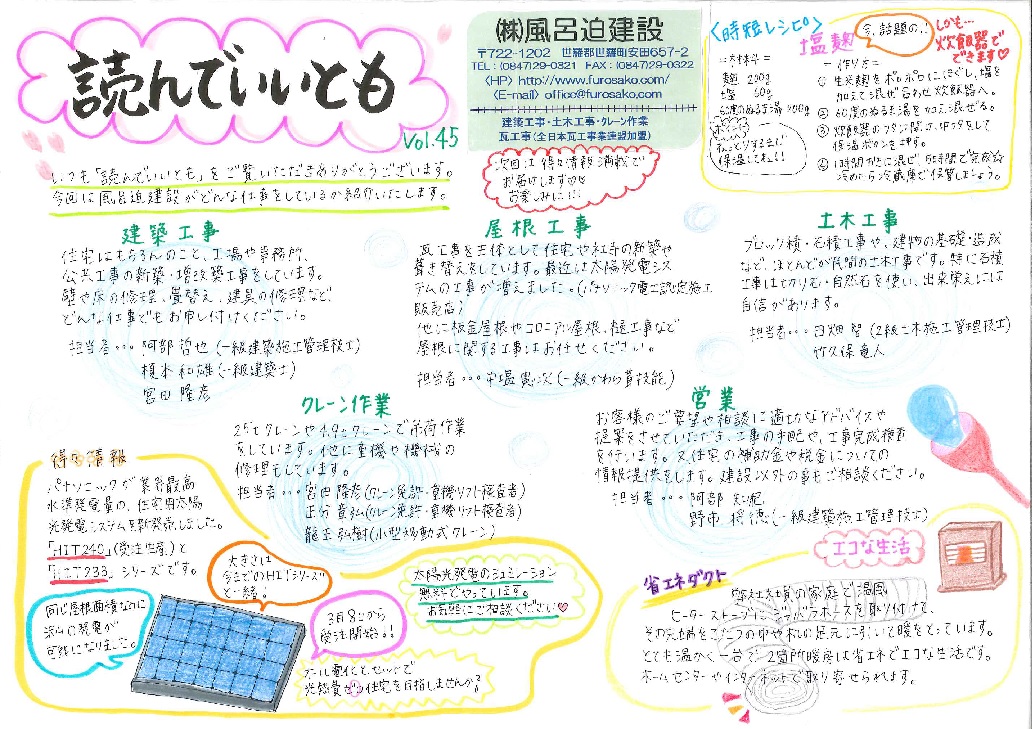 読んでいいとも
Vol.45
(株)風呂迫建設
〒722-1202 世羅郡世羅町安田657-2
TEL:(0847)29-0321 FAX:(0847)29-0322
〈HP〉http://www.furosako.com/
〈E-mail〉office@furosako.com
建築工事・土木工事・クレーン作業
瓦工事(全日本瓦工事業連盟加盟)
次回は得々情報満載で
お届けします♡♡
お楽しみに!!!
〈時短レシピ〉
塩麹
今、話題の!!
しかも…
炊飯器で
できます♡
=材料=
麹 200g
塩 60g
60度のぬるま湯
ポイント
保温してね!!
=作り方=
① 生米麹をポロポロにほぐし、塩を
加えて混ぜ合わせ炊飯器へ。
② 60度のぬるま湯を加え混ぜる。
③ 炊飯器のフタを開け
保温ボタンを押す。
④ 1時間おきに混ぜ、6時間で完成☆
冷めたら冷蔵庫で保管しましょう。
いつも「読んでいいとも」をご覧いただきありがとうございます。
今回は風呂迫建設がどんな仕事をしているか紹介いたします。
建築工事
住宅はもちろんのこと、工場や事務所、
公共工事の新築・増改築工事をしています。
壁や床の修理、畳替え、建具の修理など、
どんな仕事でもお申し付けください。
担当者・・・阿部 哲也(一級建築施工管理技士)
榎木 和雄(一級建築士)
宮田 隆彦
屋根工事
瓦工事を主体として住宅や社寺の新築や
葺き替えをしています。最近は太陽発電シス
テムの工事が増えました。(パナソニック電工認定施工
販売店)
他に板金屋根やコロニアル屋根、樋工事など
屋根に関する工事はお任せください。
担当者・・・中塩 寛次(一級かわら葺技能)
土木工事
ブロック積・石積工事や、建物の基礎・造成
など、ほとんどが民間の土木工事です。特に石積
工事はセカリ石・自然石を使い、出来栄えには
自信があります。
担当者・・・日畑 智(2級土木施工管理技士)
竹久保 竜人
クレーン作業
25tクレーンや4.9tクレーンで吊荷作業
をしています。他に重機や機械の
修理もしています。
担当者・・・宮田 隆彦(クレーン免許・重機リフト検査者)
正分 貴弘(クレーン免許・重機リフト検査者)
龍王 弘樹(小型移動式クレーン)
営業
お客様のご要望や相談に適切なアドバイスや
提案をさせていただき、工事の手配や、工事完成検査
を行います。又、住宅の補助金や税金についての
情報提供をします。建設以外の事もご相談ください。
担当者・・・阿部 和紀
野市 将徳(一級建築施工管理技士)
得々情報
パナソニックで業界最高
水準発電量の、住宅用太陽
光発電システムを新発売しました。
「HIT240」(受注生産)と
「HIT233」シリーズです。
大きさは
今までのHITシリーズ
と一緒。
同じ屋根面積なのに
沢山の発電が
可能になりました。
3月8日から
受注開始!!
太陽光発電のシュミレーション
無料でやっています。
お気軽にご相談ください♡
オール電化とセットで
光熱費ゼロ住宅を目指しませんか?
エコな生活
省エネダクト
の家庭で温風
ヒーターストーブにジャバラホースを取り付けて、
その先端をこたつの中や机の足元に引いて暖をとっています。
とても温かく一台で2箇所暖房は省エネでエコな生活です。
ホームセンターやインターネットで取り寄せられます。